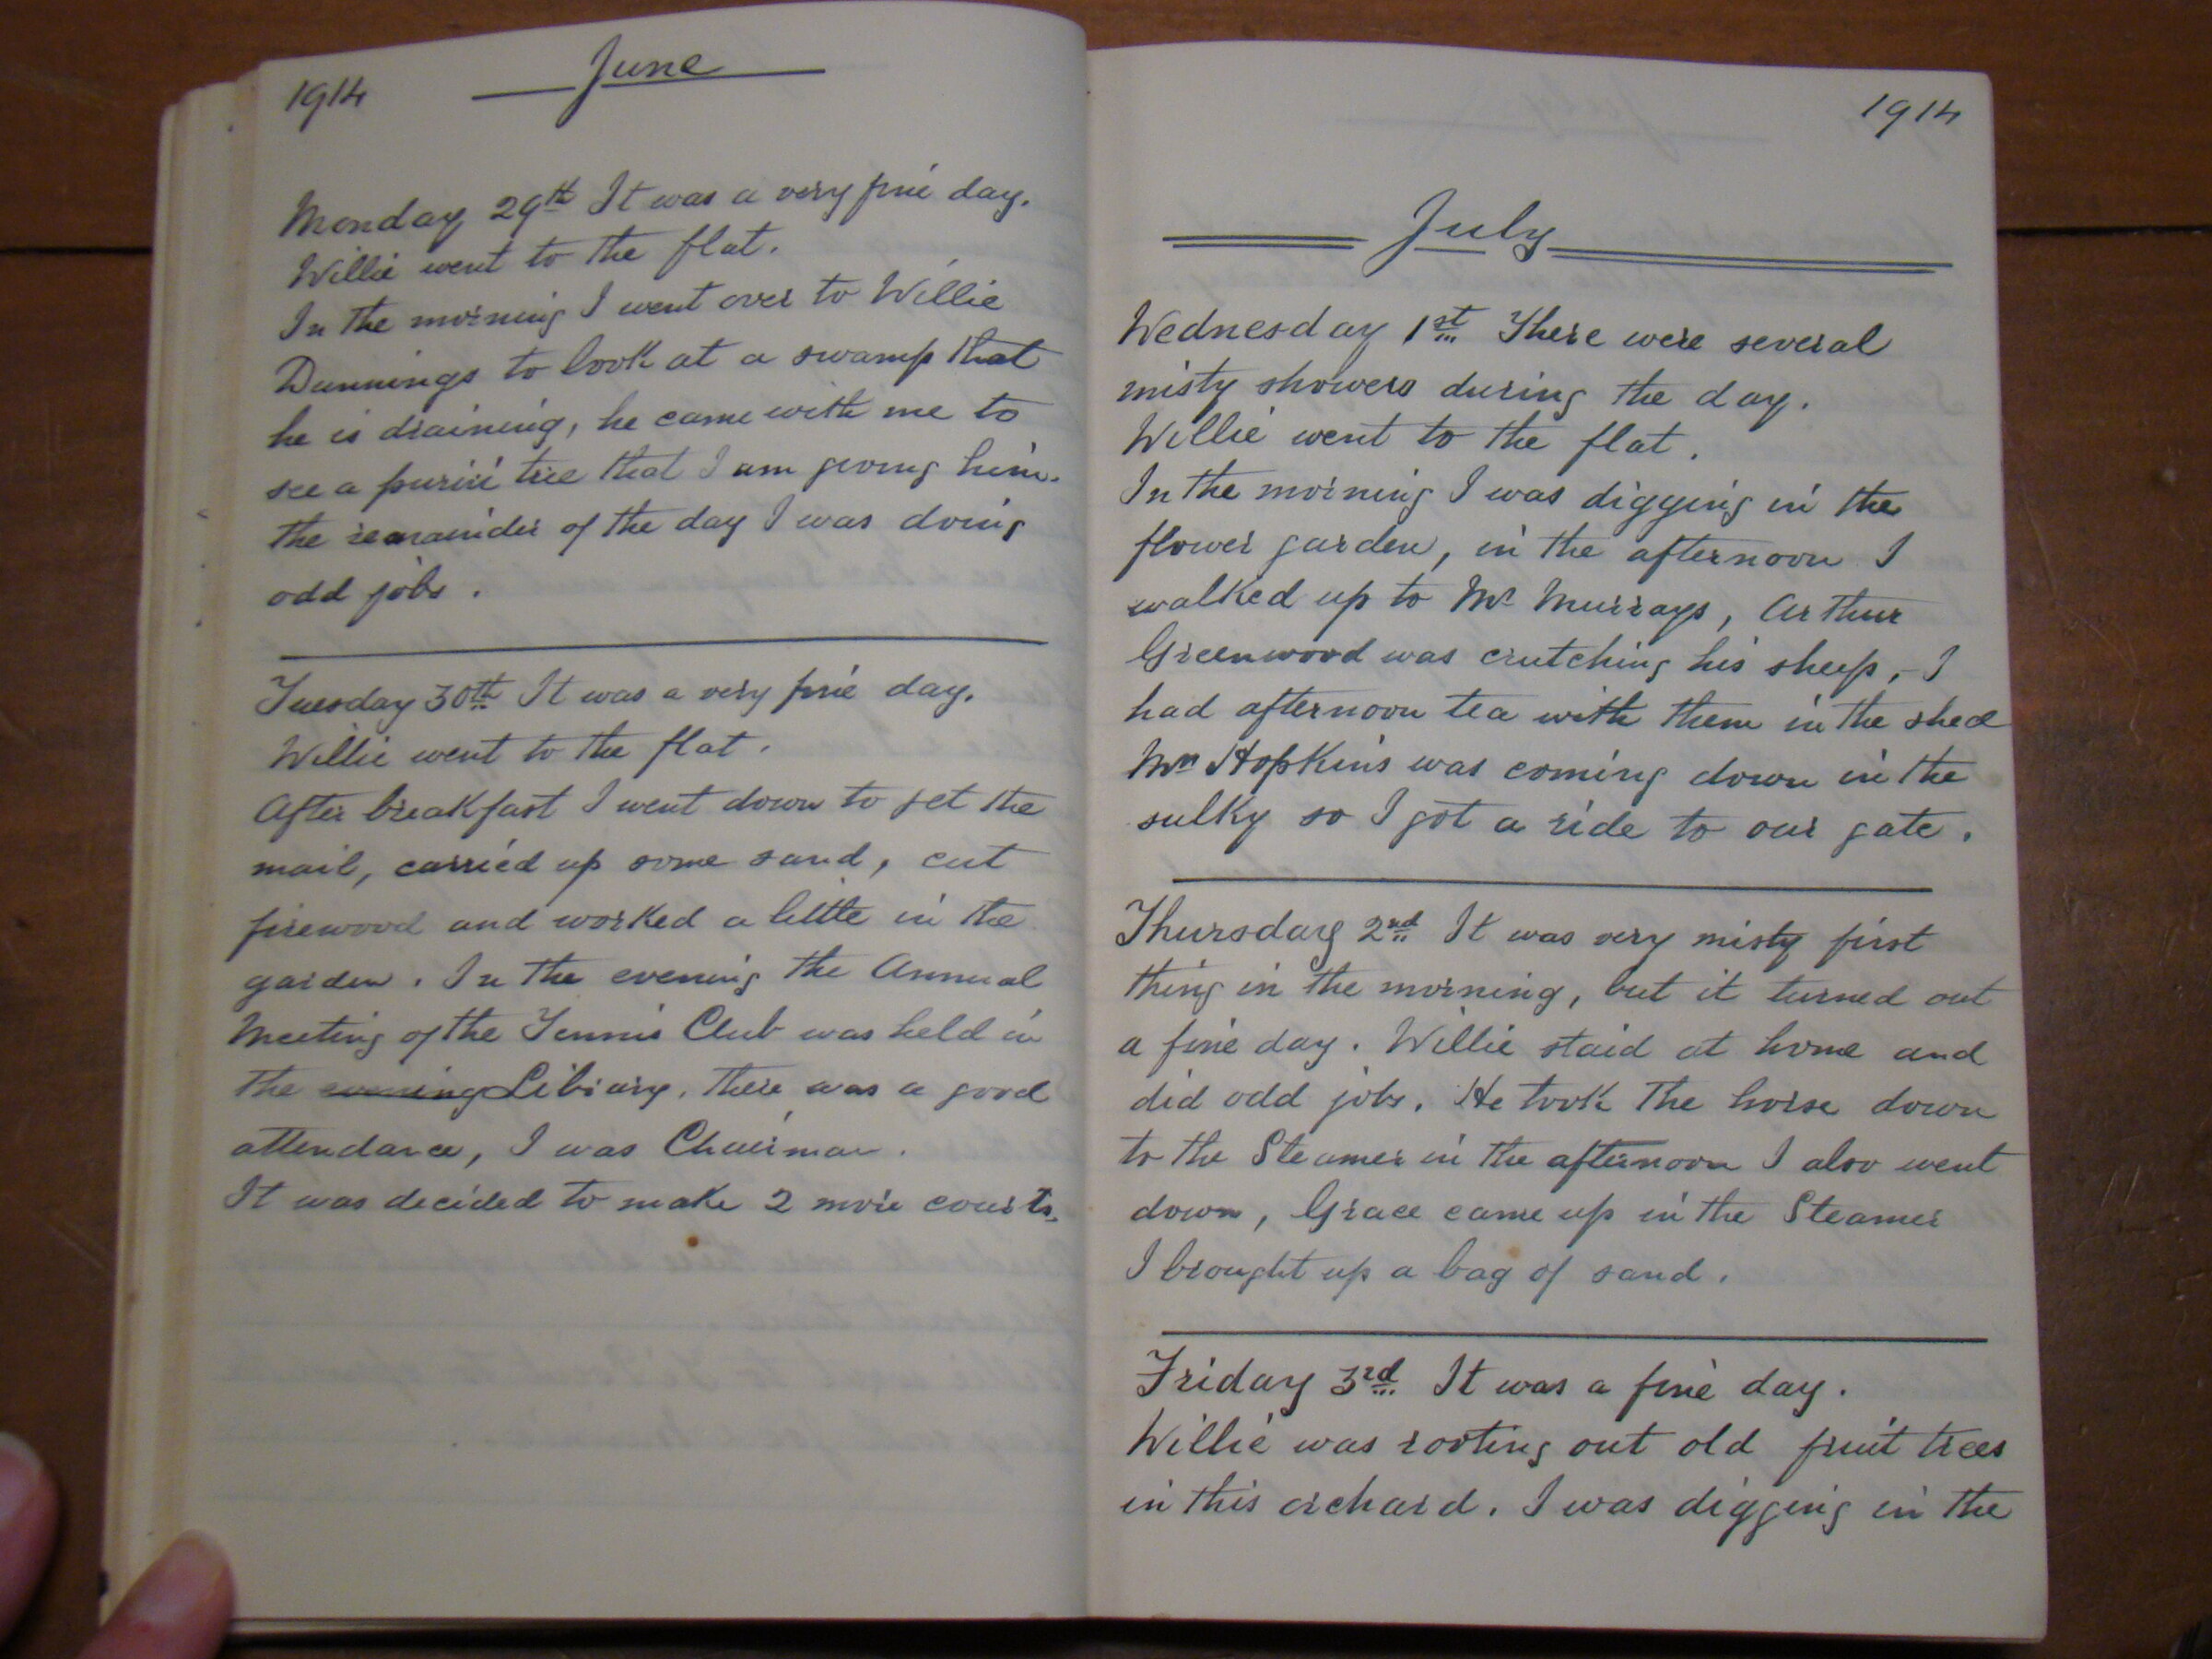 1914
June
Monday 29th It was a very fine day.
Willie went to the flat.
In the morning I went over to Willie
Dunnings to look at a swamp that
he is draining, he came with me to
see a puriri tree that I am giving him.
the remainder of the day I was doing
odd jobs.
Tuesday 30th It was a very fine day.
Willie went to the flat.
After breakfast I went down to get the
mail, carried up some sand, cut
firewood and worked a little in the
garden. In the evening the Annual
Meeting of the Tennis Club was held in
the evening Library. there was a good
attendance, I was Chairman.
It was decided to make 2 more courts.
1914
July
Wednesday 1st There were several
misty showers during the day.
Willie went to the flat.
In the morning I was digging in the
flower garden, in the afternoon I
walked up to Mr Murrays, Arthur
Greenwood was crutching his sheep, - I
had afternoon tea with them in the shed
Mrs Hopkins was coming down in the
sulky so I got a ride to our gate.
Thursday 2nd It was very misty first
thing in the morning, but it turned out
a fine day. Willie staid at home and
did odd jobs. He took the horse down
to the Steamer in the afternoon I also went
down, Grace came up in the Steamer
I brought up a bag of sand.
Friday 3rd It was a fine day.
Willie was rooting out old fruit trees
in this orchard. I was digging in the